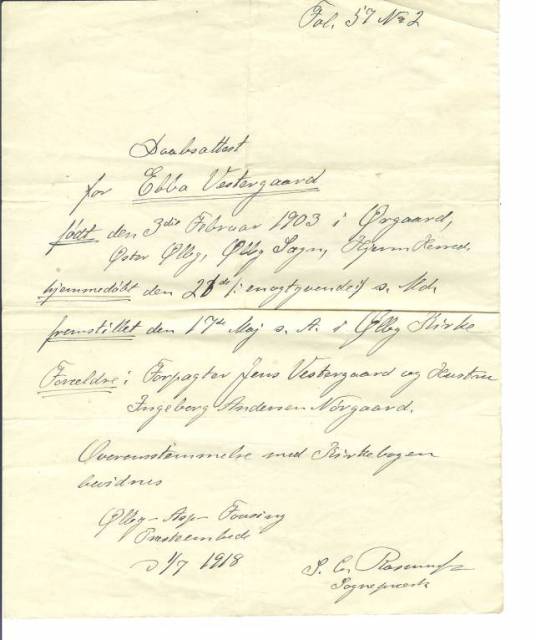 Fol. 57 No 2
Daabsattest
for Ebba Vestergaard
født den 3die Februar 1903 i Ørgaard,
Øster Ølby, Ølby Sogn, Hjerm Herred.
hjemmedøbt den 21de /: enogtyvende :/ s. Md.
fremstillet den 17de Maj s. A. i Ølby Kirke
Forældre: Forpagter Jens Vestergaard og Hustru
Ingeborg Andersen Nørgaard.
Overensstemmelse med Kirkebogen
bevidnes
Ølby-Asp-Fousing
Præsteembede
D 1/7 1918
Sognepræst